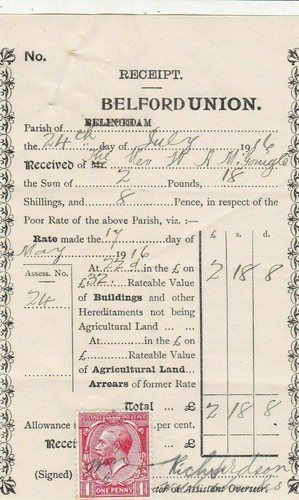 No.
RECEIPT.
BELFORD UNION.
Parish of
the 24th day of July 1916
Received of Mr. The Rev W A McGonigle
the Sum of 2 Pounds, 18
Shillings, and 8 Pence, in respect of the
Poor Rate of the above Parish, viz. :—
Rate made the 17 day of
May 1916
£ s. d.
Assess. No.
24
At 22d in the £ on
£32 Rateable Value 2 18 8
of Buildings and other
Hereditaments not being
Agricultural Land ...
At in the £ on
£ Rateable Value
of Agricultural Land...
Arrears of former Rate
Total ... £ 2 18 8
Allowance per cent. £
Recei £
POSTAGE REVENUE
ONE PENNY
(Signed) Richardson
tor or Assistant Overseer.